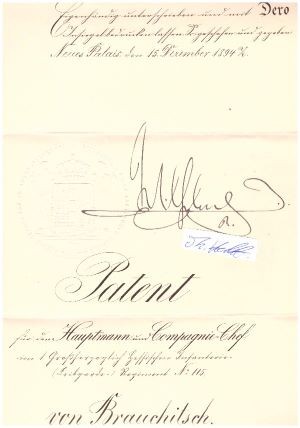 Eigenhändig unterschrieben und mit Dero
Insiegel bedrucken lassen. Geschehen und gegeben
Neues Palais, den 15. Dezember 1894.
Patent
für den Hauptmann und Compagnie-Chef
im 1 Großherzoglich Hessischen Infanterie-
(Leibgarde-) Regiment № 115
von Brauchitsch.